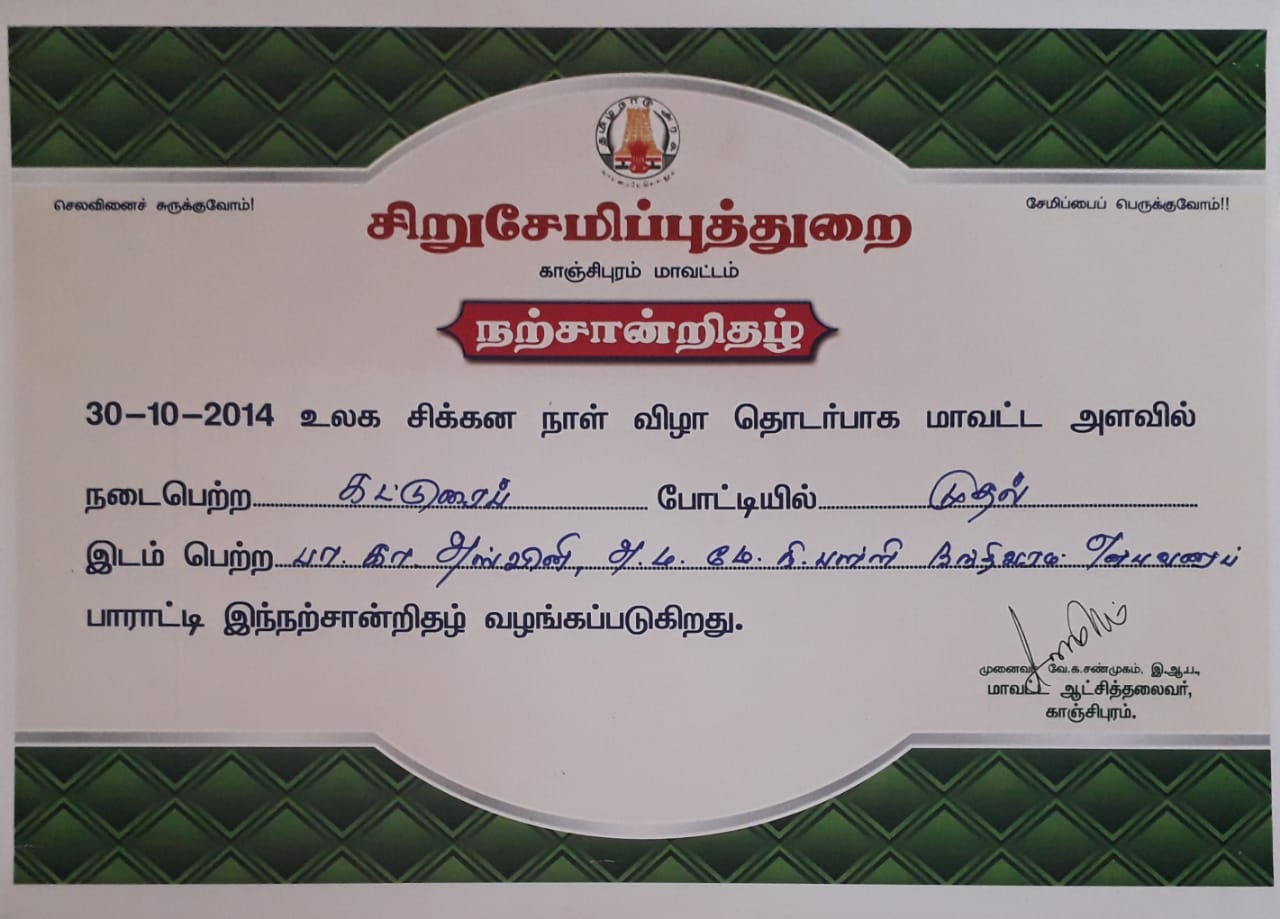 தமிழ்நாடு அரசு
வாய்மையே வெல்லும்
செலவினைச் சுருக்குவோம்!
சேமிப்பைப் பெருக்குவோம்!!
சிறுசேமிப்புத்துறை
காஞ்சிபுரம் மாவட்டம்
நற்சான்றிதழ்
30-10-2014 உலக சிக்கன நாள் விழா தொடர்பாக மாவட்ட அளவில்
நடைபெற்ற கட்டுரைப் போட்டியில் முதல்
இடம் பெற்ற பா. கா. அஸ்வினி, அ. ம. மே. நி. பள்ளி என்பவரைப்
பாராட்டி இந்நற்சான்றிதழ் வழங்கப்படுகிறது.
முனைவர் வே.க.சண்முகம், இ.ஆ.ப.,
மாவட்ட ஆட்சித்தலைவர்,
காஞ்சிபுரம்.